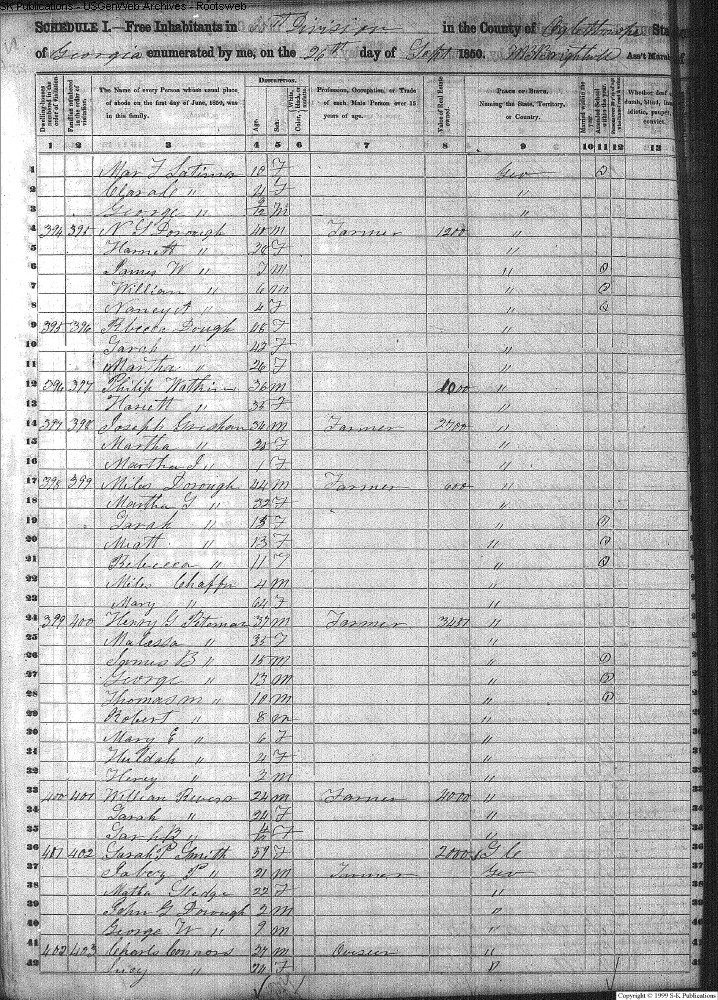 SK Publications - USGenWeb Archives - Rootsweb
SCHEDULE I.—Free Inhabitants in 55th Division in the County of Oglethorpe State
of Georgia enumerated by me, on the 26th day of Sept 1850. Ass't Marshal
Dwelling-houses numbered in the order of visitation. Families numbered in the order of visitation. The Name of every Person whose usual place of abode on the first day of June, 1850, was in this family. DESCRIPTION. Age. Sex. White, black, or mulatto. Color, Profession, Occupation, or Trade of each Male Person over 15 years of age. Value of Real Estate owned. PLACE OF BIRTH. Naming the State, Territory, or Country. Married within the year. Attended School within the year. Whether deaf and dumb, blind, insane, idiotic, pauper, or convict.
1 2 3 4 5 6 7 8 9 10 11 12 13
1 Latimer 10 F Geo
2 Clara " 4 F "
3 George " 9/12 M "
4 394 395 N G Dorough 40 M Farmer 1200 "
5 Harriett " 36 F "
6 James W " 7 M "
7 William " 6 M "
8 Nancy A " 4 F "
9 395 396 Rbecca Dough 48 F "
10 Sarah " 42 F "
11 Martha " 26 F "
12 396 397 Philip Watkins 36 M 1000 "
13 Hariett " 35 F "
14 397 398 Joseph Gresham 36 M Farmer 2700 "
15 Martha " 30 F "
16 Martha J " 1 F "
17 398 399 Miles Dorough 44 M Farmer 600 "
18 Martha G " 32 F "
19 Sarah " 15 F "
20 Miatt " 13 F "
21 Rebecca " 11 F "
22 Miles Chaffin 4 M "
23 Mary " 64 F "
24 399 400 Henry G Pitman 37 M Farmer 3400 "
25 Malassa " 35 F "
26 James B " 15 M "
27 George " 13 M "
28 Thomas M " 10 M "
29 Robert " 8 M "
30 Mary E " 6 F "
31 Huldah " 4 F "
32 Henry " 2 M "
33 400 401 William Rivers 24 M Farmer 4000 "
34 Sarah " 24 F "
35 Sarah B " 4/12 F "
36 401 402 Sarah P Smith 57 F 2000
37 Jabez P " 21 M Farmer Geo
38 Sledge 22 F "
39 John G Dorough 2 M "
40 George W " 9 M "
41 402 403 Charls Connors 27 M Overseer "
42 Lucy " 24 F "
Copyright © 1999 S-K Publications